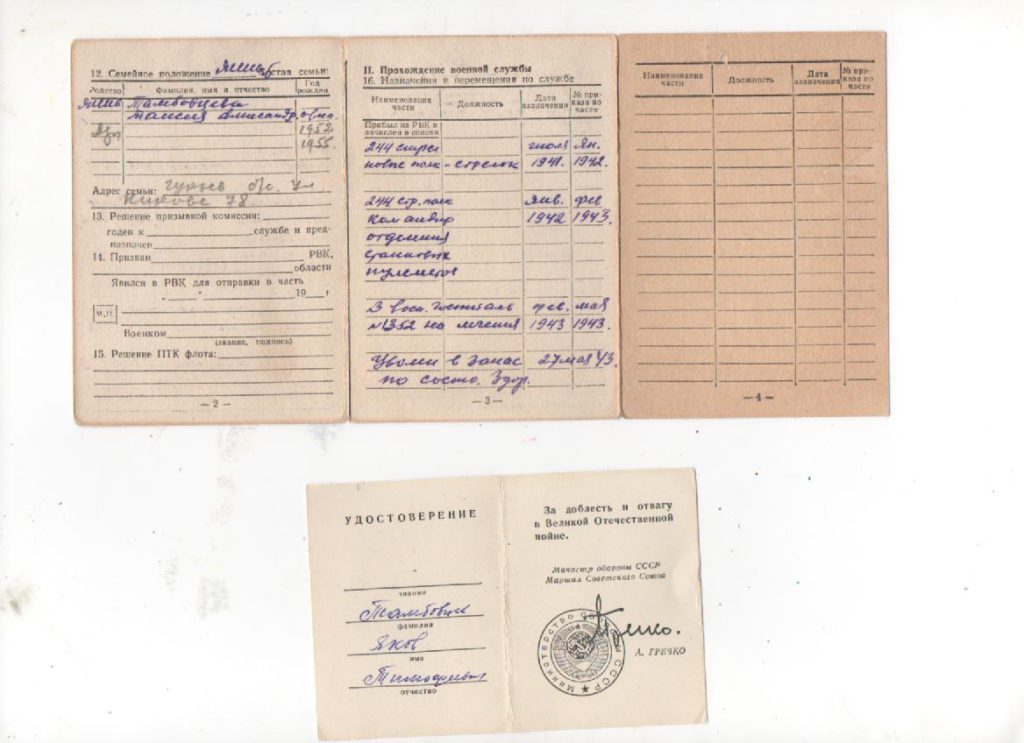 12. Семейное положение состав семьи:
Родство Фамилия, имя и отчество Год рожден.
жена Тамбовцева
Таисия Александровна
1952
1955
Адрес семьи: Гурьев обл. ул
Кирова 78
13. Решение призывной комиссии:
годен к службе и пред-
назначен
14. Призван РВК,
области
Явился в РВК для отправки в часть
" " 19 г
М.П.
Военком
(звание, подпись)
15. Решение ПТК флота:
— 2 —
II. Прохождение военной службы
16. Назначения и перемещения по службе
Наименование части Должность Дата назначения № приказа по части
Прибыл из РВК и
зачислен в списки
244 стрел июля Ян.
ковые полк - стрелок 1941. 1942.
244 стр. полк Янв. фев
Командир 1942 1943.
отделения
станковых
пулеметов
В воен. Госпиталь фев. мая
№1352 на лечения 1943 1943.
Уволен в запас 27 мая 43.
по состо. Здор.
— 3 —
Наименование части Должность Дата назначения № приказа по части
— 4 —
УДОСТОВЕРЕНИЕ
звание
Тамбовцев
фамилия
Яков
имя
Тимофеевич
отчество
За доблесть и отвагу
в Великой Отечественной
войне.
Министр обороны СССР
Маршал Советского Союза
Министерство обороны СССР
А. ГРЕЧКО